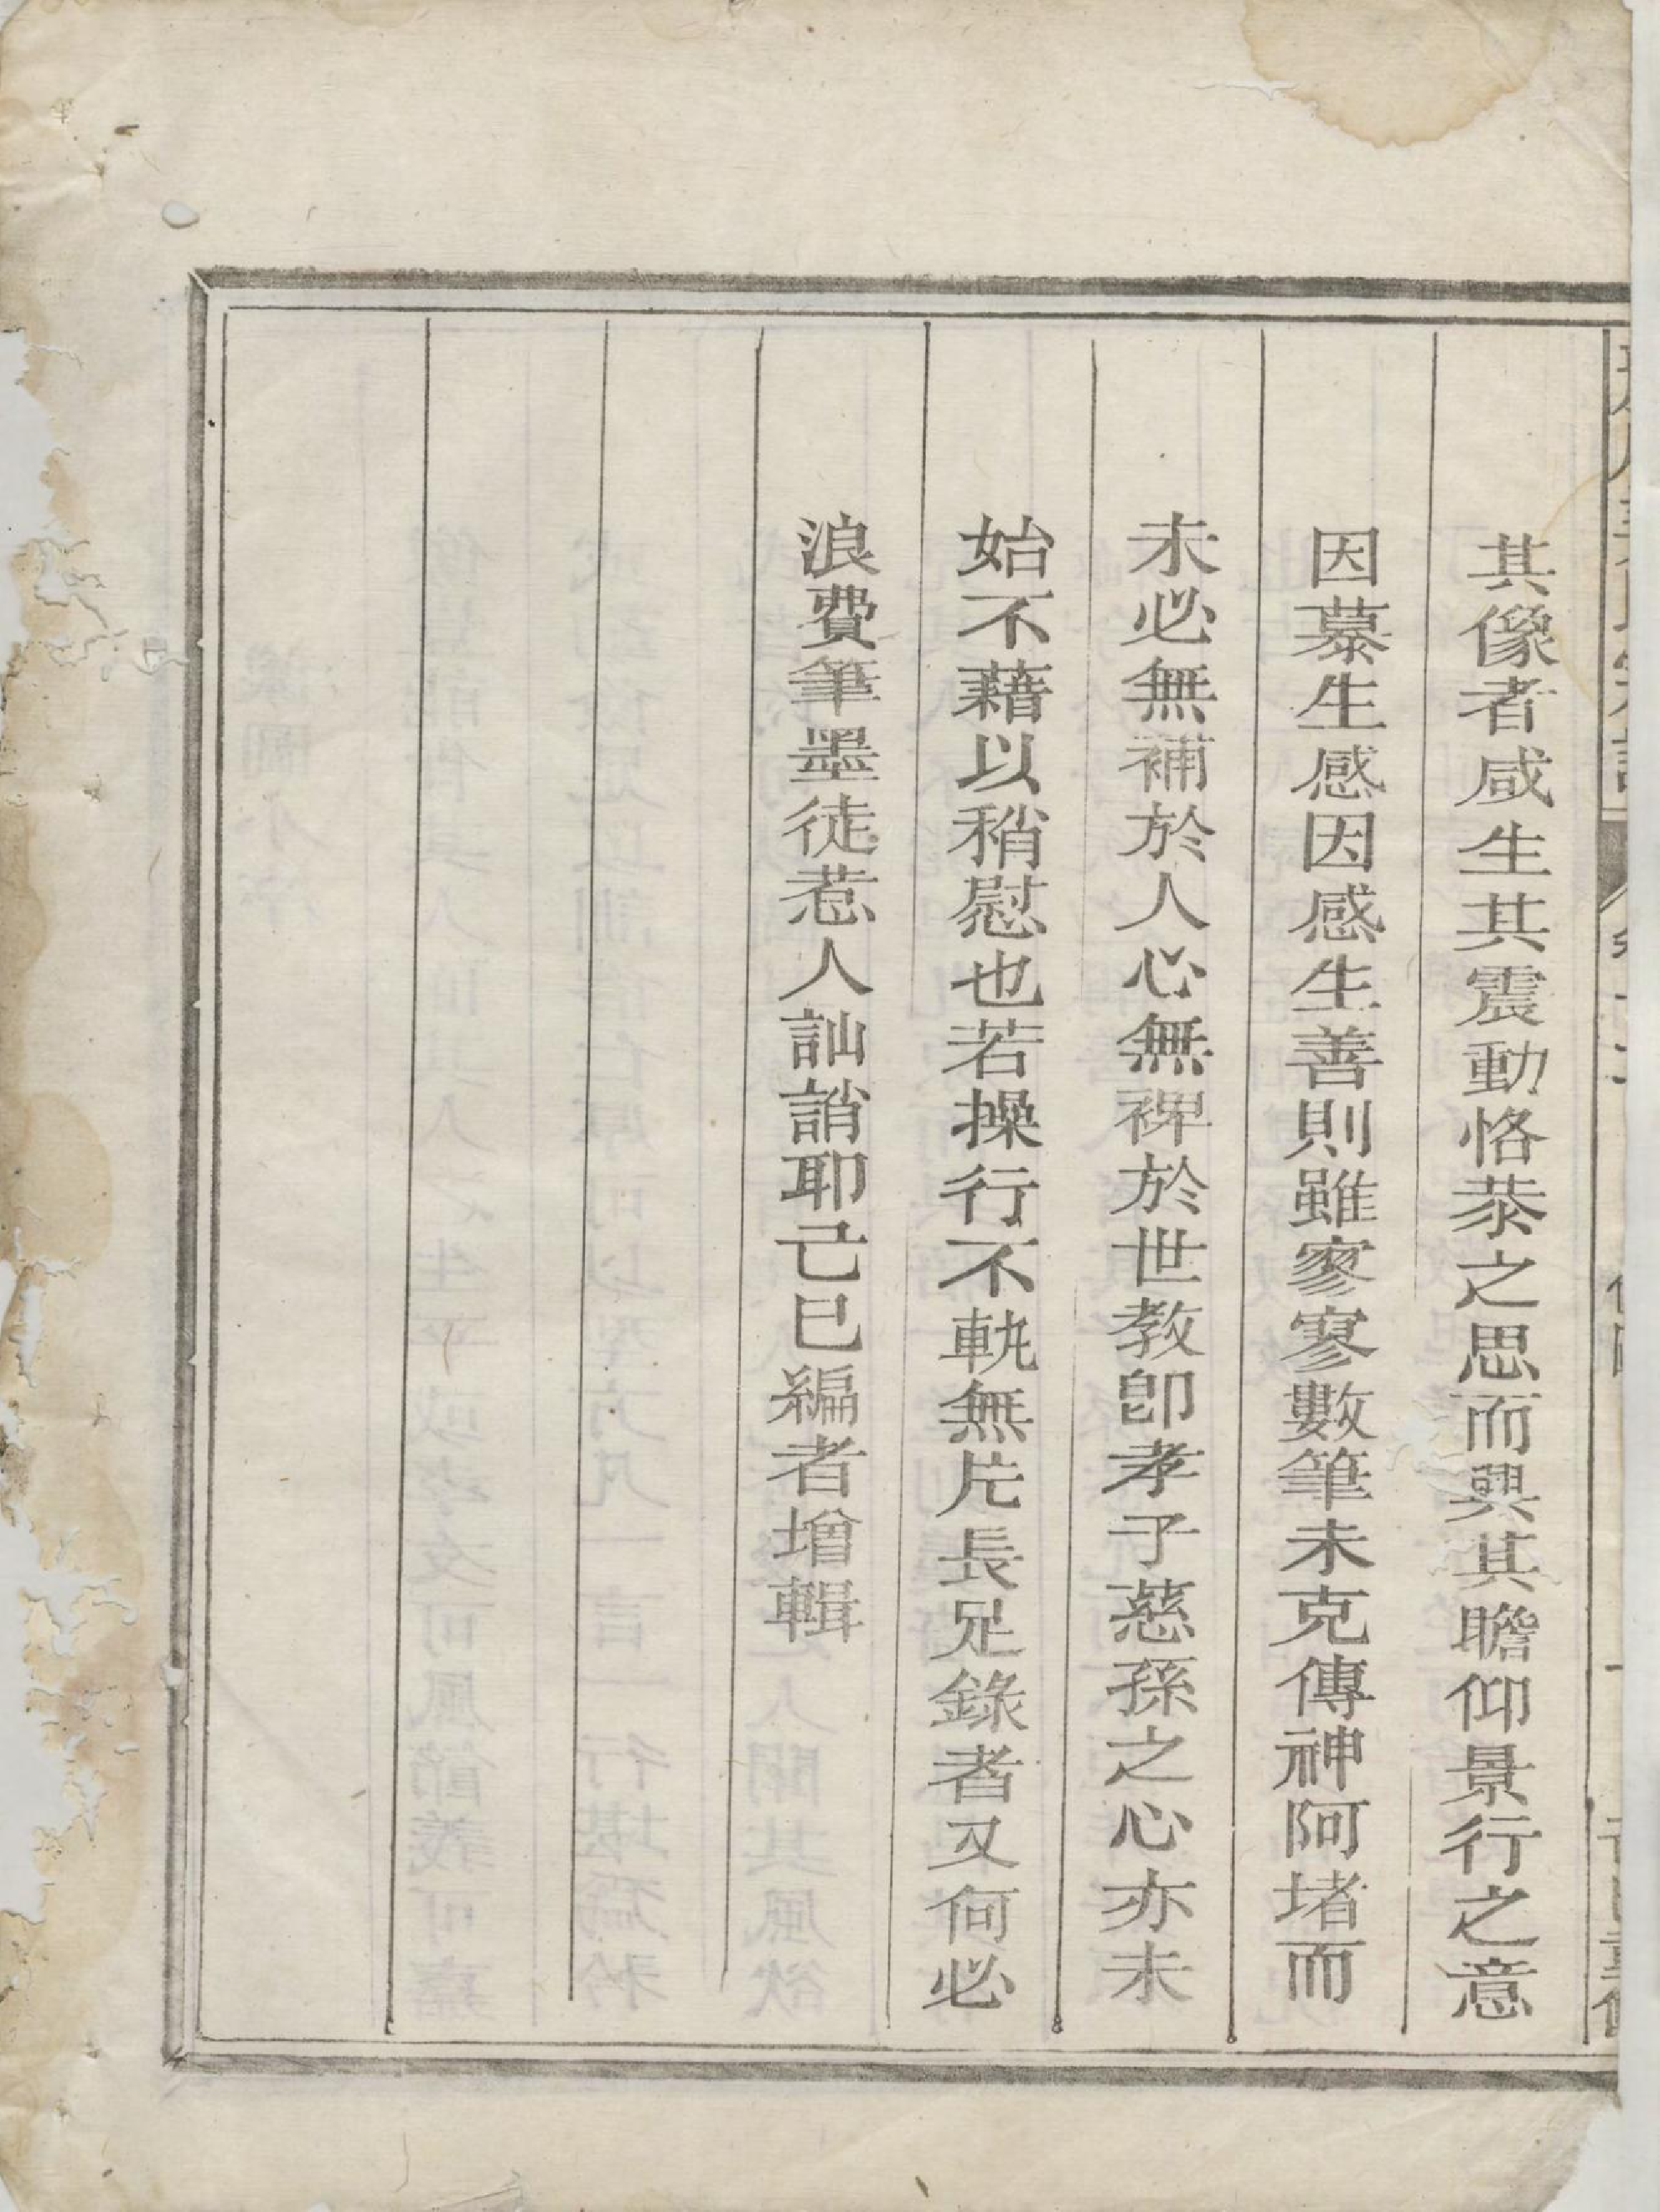 其像者咸生其震動恪恭之思而興其瞻仰景行之意
因慕生感因感生善則雖寥寥數筆未克傳神阿堵而
未必無補於人心無裨於世教卽孝子慈孫之心亦未
始不藉以稍慰也若操行不軌無片長足錄者又何必
浪費筆墨徒惹人訕誚耶己巳編者增輯